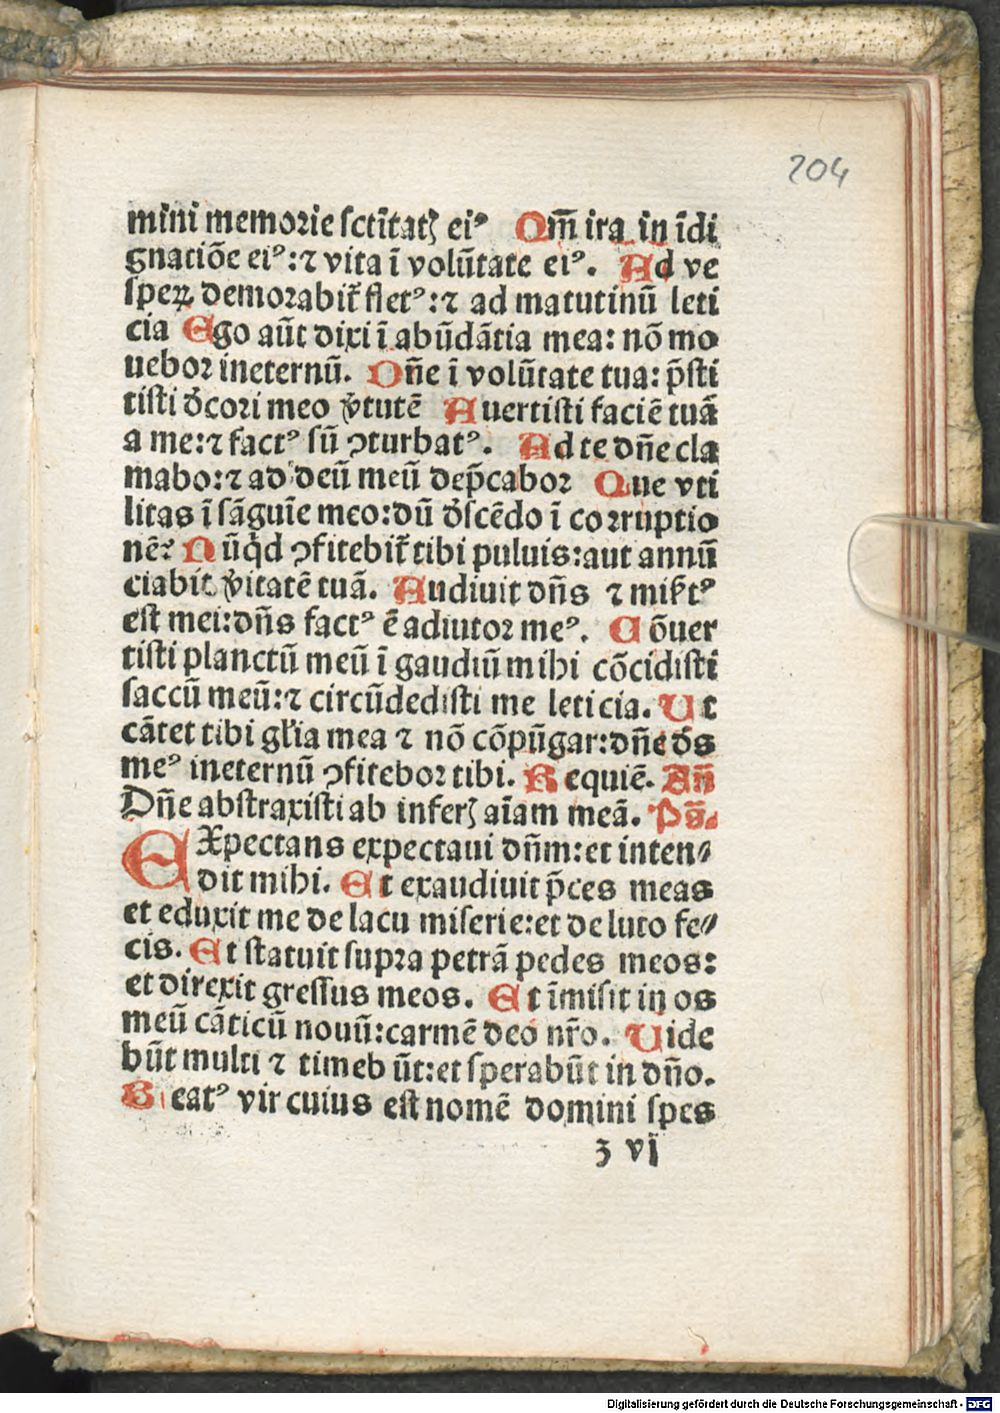 204
mini memorie sctītatꝫ eiꝰ Qm̄ ira in īdi
gnatiōe eiꝰ:⁊ vita ī volūtate eiꝰ. Ad ve
sperꝝ demorabit̄ fletꝰ:⁊ ad matutinū leti
cia Ego aūt dixi ī abūdātia mea: nō mo
uebor ineternū. Dn̄e ī volūtate tua: p̄sti
tisti d̾cori meo v̾tutē Auertisti faciē tuā
a me:⁊ factꝰ sū ꝯturbatꝰ. Ad te dn̄e cla
mabo:⁊ ad deū meū dep̄cabor Que vti
litas ī sāguīe meo:dū d̾scēdo ī corruptio
nē? Nūqd̾ ꝯfitebit̄ tibi puluis:aut annū
ciabit v̾itatē tuā. Audiuit dn̄s ⁊ mis̄tꝰ
est mei:dn̄s factꝰ ē adiutor meꝰ. Cōuer
tisti planctū meū ī gaudiū mihi cōcidisti
saccū meū:⁊ circūdedisti me leticia. Ut
cātet tibi gl̄ia mea ⁊ nō cōpūgar:dn̄e d̾s
meꝰ ineternū ꝯfitebor tibi. Requiē. An̄
Dn̄e abstraxisti ab inferꝫ aīam meā. Ps̄.
EXpectans expectaui dn̄m:et inten⸗
dit mihi. Et exaudiuit p̄ces meas
et eduxit me de lacu miserie:et de luto fe⸗
cis. Et statuit supra petrā pedes meos:
et direxit gressus meos. Et īmisit in os
meū cāticū nouū:carmē deo nr̄o. Uide
būt multi ⁊ timebūt:et sperabūt in dn̄o.
Beatꝰ vir cuius est nomē domini spes
ʒ vj
Digitalisierung gefördert durch die Deutsche Forschungsgemeinschaft - DFG